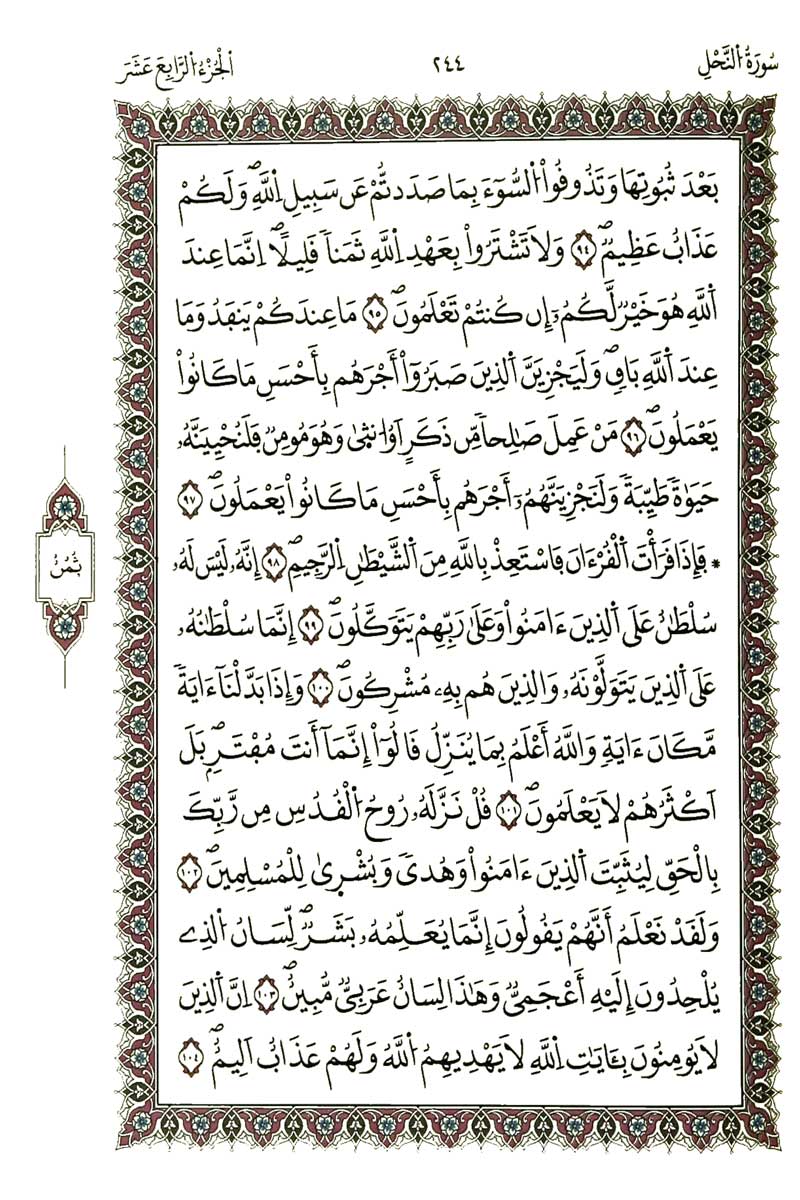 سُورَةُ النَّحْلِ
٢٤٤
اَلْجُزْءُ الرَّابِعَ عَشَرَ
بَعْدَ ثُبُوتِهَا وَتَذُوقُواْ السُّوٓءَ بِمَا صَدَدتُّمْ عَن سَبِيلِ اِللَّهِ وَلَكُمْ
عَذَابٌ عَظِيمٌ ٩٤ وَلَا تَشْتَرُواْ بِعَهْدِ اِللَّهِ ثَمَناٗ قَلِيلًا اِنَّمَا عِندَ
اَللَّهِ هُوَ خَيْرٞ لَّكُمُۥٓ إِن كُنتُمْ تَعْلَمُونَ ٩٥ مَا عِندَكُمْ يَنفَدُ وَمَا
عِندَ اَللَّهِ بَاقٖ وَلَيَجْزِيَنَّ اَلذِينَ صَبَرُوٓاْ أَجْرَهُم بِأَحْسَنِ مَا كَانُواْ
يَعْمَلُونَ ٩٦ مَنْ عَمِلَ صَٰلِحاٗ مِّن ذَكَرٍ اَوُ ا۟نث۪يٰ وَهُوَ مُومِنٞ فَلَنُحْيِيَنَّهُۥ
حَيَوٰةٗ طَيِّبَةٗ وَلَنَجْزِيَنَّهُمُۥٓ أَجْرَهُم بِأَحْسَنِ مَا كَانُواْ يَعْمَلُونَ ٩٧
* فَإِذَا قَرَأْتَ اَلْقُرْءَانَ فَاسْتَعِذْ بِاللَّهِ مِنَ اَلشَّيْطَٰنِ اِلرَّجِيمِ ٩٨ إِنَّهُۥ لَيْسَ لَهُۥ
سُلْطَٰنٌ عَلَي اَلذِينَ ءَامَنُواْ وَعَلَيٰ رَبِّهِمْ يَتَوَكَّلُونَ ٩٩ إِنَّمَا سُلْطَٰنُهُۥ
عَلَي اَلذِينَ يَتَوَلَّوْنَهُۥ وَالذِينَ هُم بِهِۦ مُشْرِكُونَ ١٠٠ وَإِذَا بَدَّلْنَآ ءَايَةٗ
مَّكَانَ ءَايَةٖ وَاللَّهُ أَعْلَمُ بِمَا يُنَزِّلُ قَالُوٓاْ إِنَّمَآ أَنتَ مُفْتَرِۢ بَلَ
اَكْثَرُهُمْ لَا يَعْلَمُونَ ١٠١ قُلْ نَزَّلَهُۥ رُوحُ اُلْقُدُسِ مِن رَّبِّكَ
بِالْحَقِّ لِيُثَبِّتَ اَلذِينَ ءَامَنُواْ وَهُديٗ وَبُشْر۪يٰ لِلْمُسْلِمِينَ ١٠٢
وَلَقَدْ نَعْلَمُ أَنَّهُمْ يَقُولُونَ إِنَّمَا يُعَلِّمُهُۥ بَشَرٞ لِّسَانُ اُلذِے
يُلْحِدُونَ إِلَيْهِ أَعْجَمِيّٞ وَهَٰذَا لِسَانٌ عَرَبِيّٞ مُّبِينٌ ١٠٣ اِنَّ اَلذِينَ
لَا يُومِنُونَ بِـَٔايَٰتِ اِللَّهِ لَا يَهْدِيهِمُ اُللَّهُ وَلَهُمْ عَذَابٌ اَلِيمٌ ١٠٤
ثُمُنُ